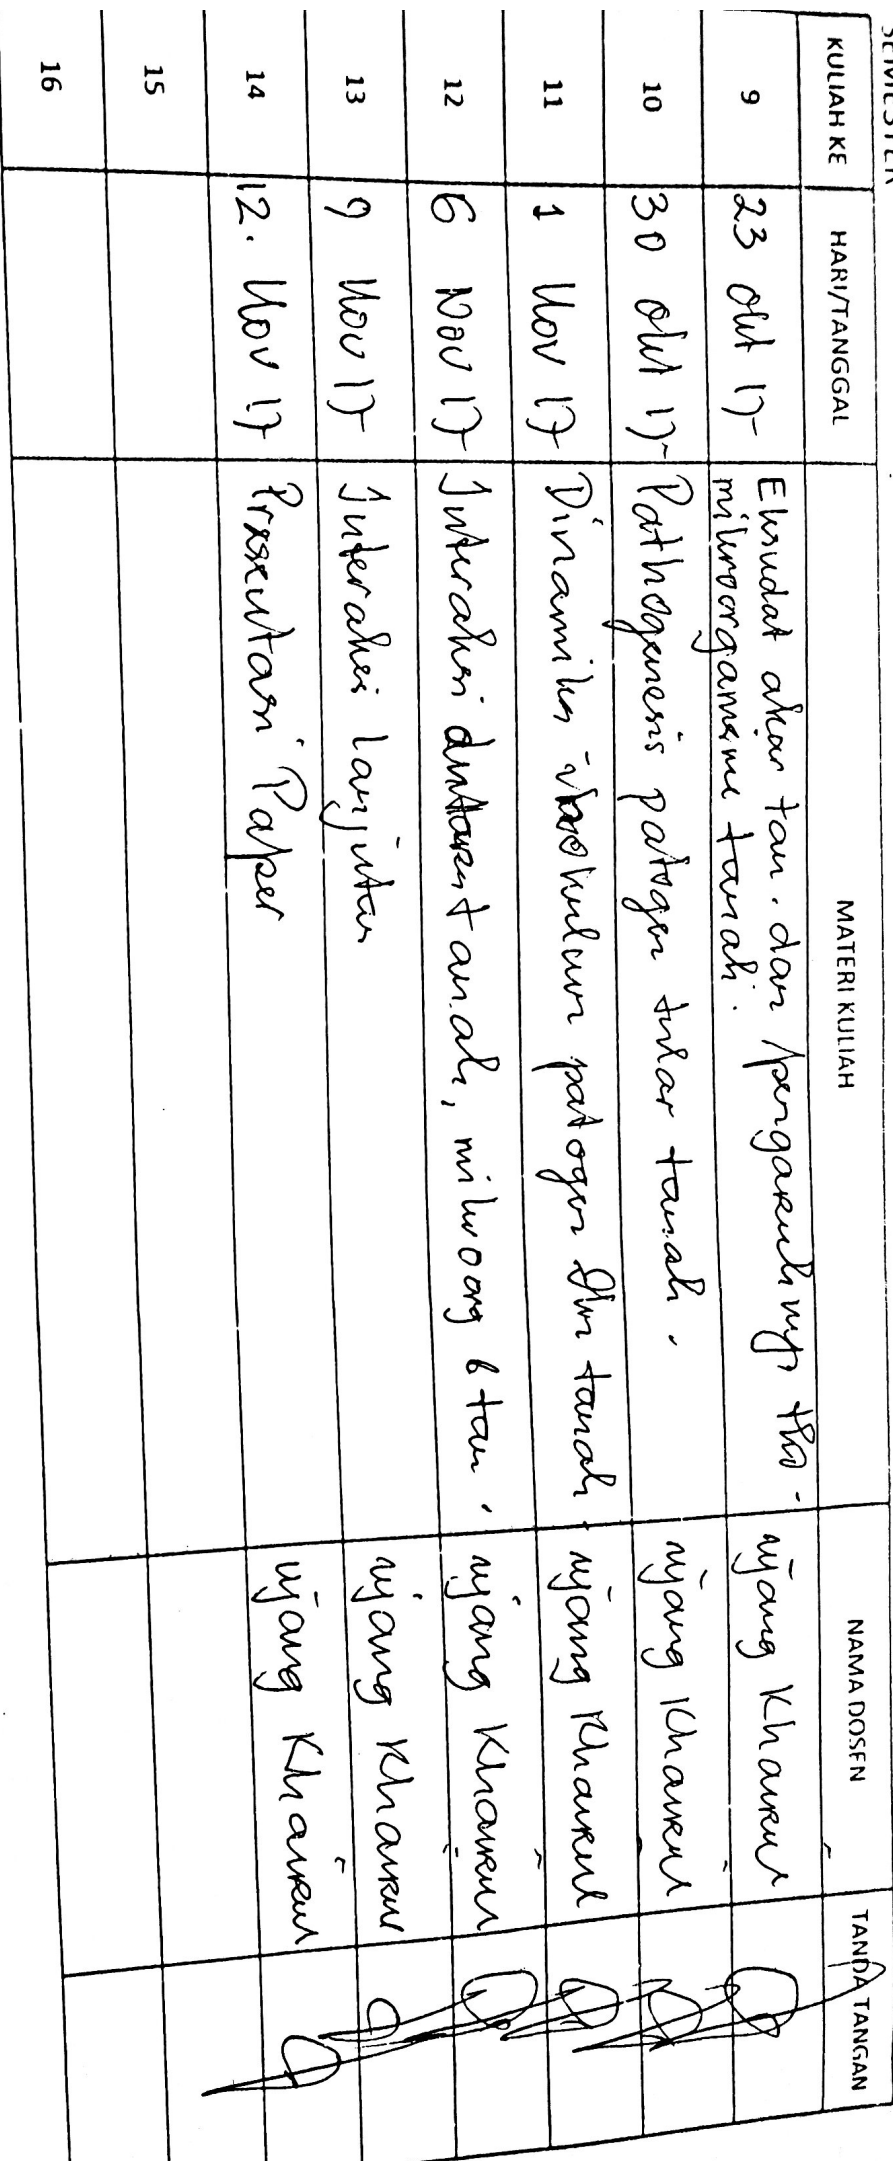 SEMESTER
KULIAH KE HARI/TANGGAL MATERI KULIAH NAMA DOSEN TANDA TANGAN
9 23 Okt 17 Eksudat akar tan. dan pengaruhnya thd - Ujang Khairul
mikroorganisme tanah.
10 30 Okt 17 Pathogenesis patogen tular tanah. Ujang Khairul
11 1 Nov 17 Dinamika inokulum patogen dlm tanah. Ujang Khairul
12 6 Nov 17 Interaksi antara tanah, mikroorg & tan. Ujang Khairul
13 9 Nov 17 Interaksi lanjutan Ujang Khairul
14 12. Nov 17 Presentasi Paper Ujang Khairul
15
16